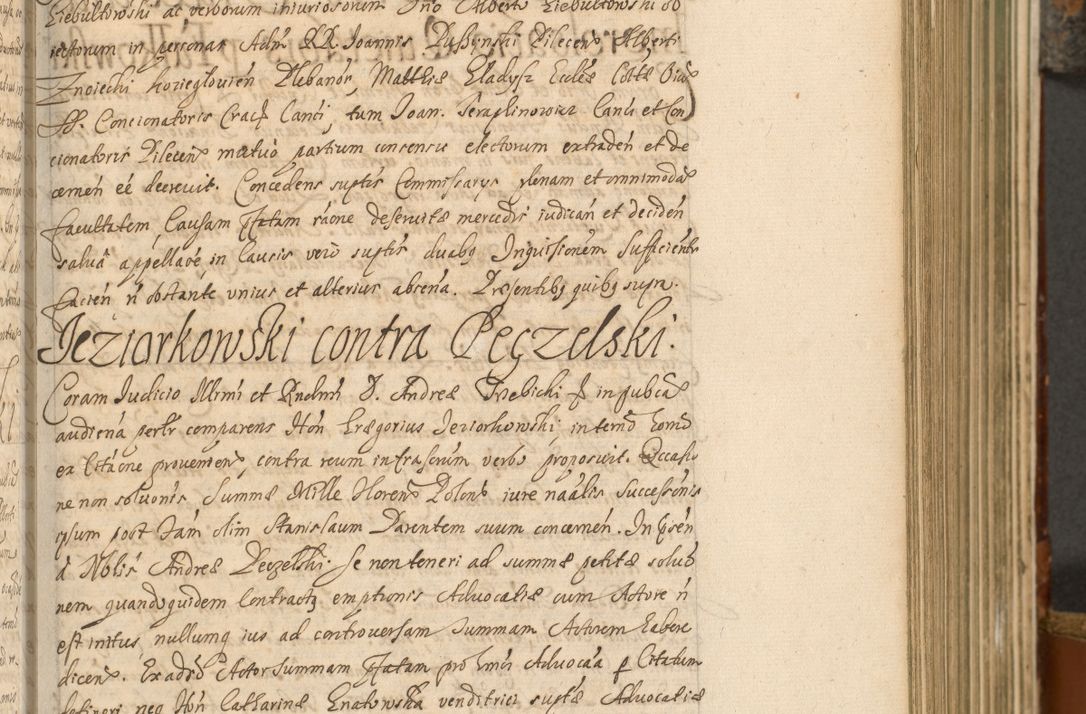 Ziebultowski ac verborum iniuriosorum Dno Alberto Ziebultowski ob
iectorum in personas Adm RR Joannis Puszynski Pilecens Alberti
Znoiecki Kozieglovien Plebanor, Matthiæ Gladysz Eccles Cottæ Oium
SS. Concionatoris Crac Canci, tum Joan. Seraphinowicz Canci et Con
cionatoris Pilecen mutuo partium consensu electorum extraden et de
cernen eé decrevit. Concedens suptis Commissarys plenam et omnimodam
facultatem Causam pfatam raone deservitæ mercedis iudican et deciden
salvâ appellaôe in Causis verò suptis duabq Inquisitionem sufficiente
facien n obstante unius et alterius absena. Præsentibq quibq supra.
Jeziorkowski contra Peczelski.
Coram Judicio Illrmi et Rndmi D. Andreæ Trzebicki in publica
audiena perlr comparens Hon Grægorius Jeziorkowski in termo homo
ex Citaone provenien, contra reum infrascrum verbo proposuit. Occasio
ne non solutonis Summæ Mille Floren Polon iure naalis Successonis
ipsum post Fam olim Stanislaum Parentem suum concernen. In psen
à Noblis Andreæ Peczelski. se non teneri ad summæ petitæ solutio
nem quandoquidem Contractq emptionis Advocatiæ cum Actore n
est initus nullumq ius ad controversam summam Actorem habere
dicens. Ex adro Actor summam pfatam pro hmoi Advocaa p Citatum
retineri neq Hon Catharinæ Gnatowska venditrici suptæ Advocatiæ